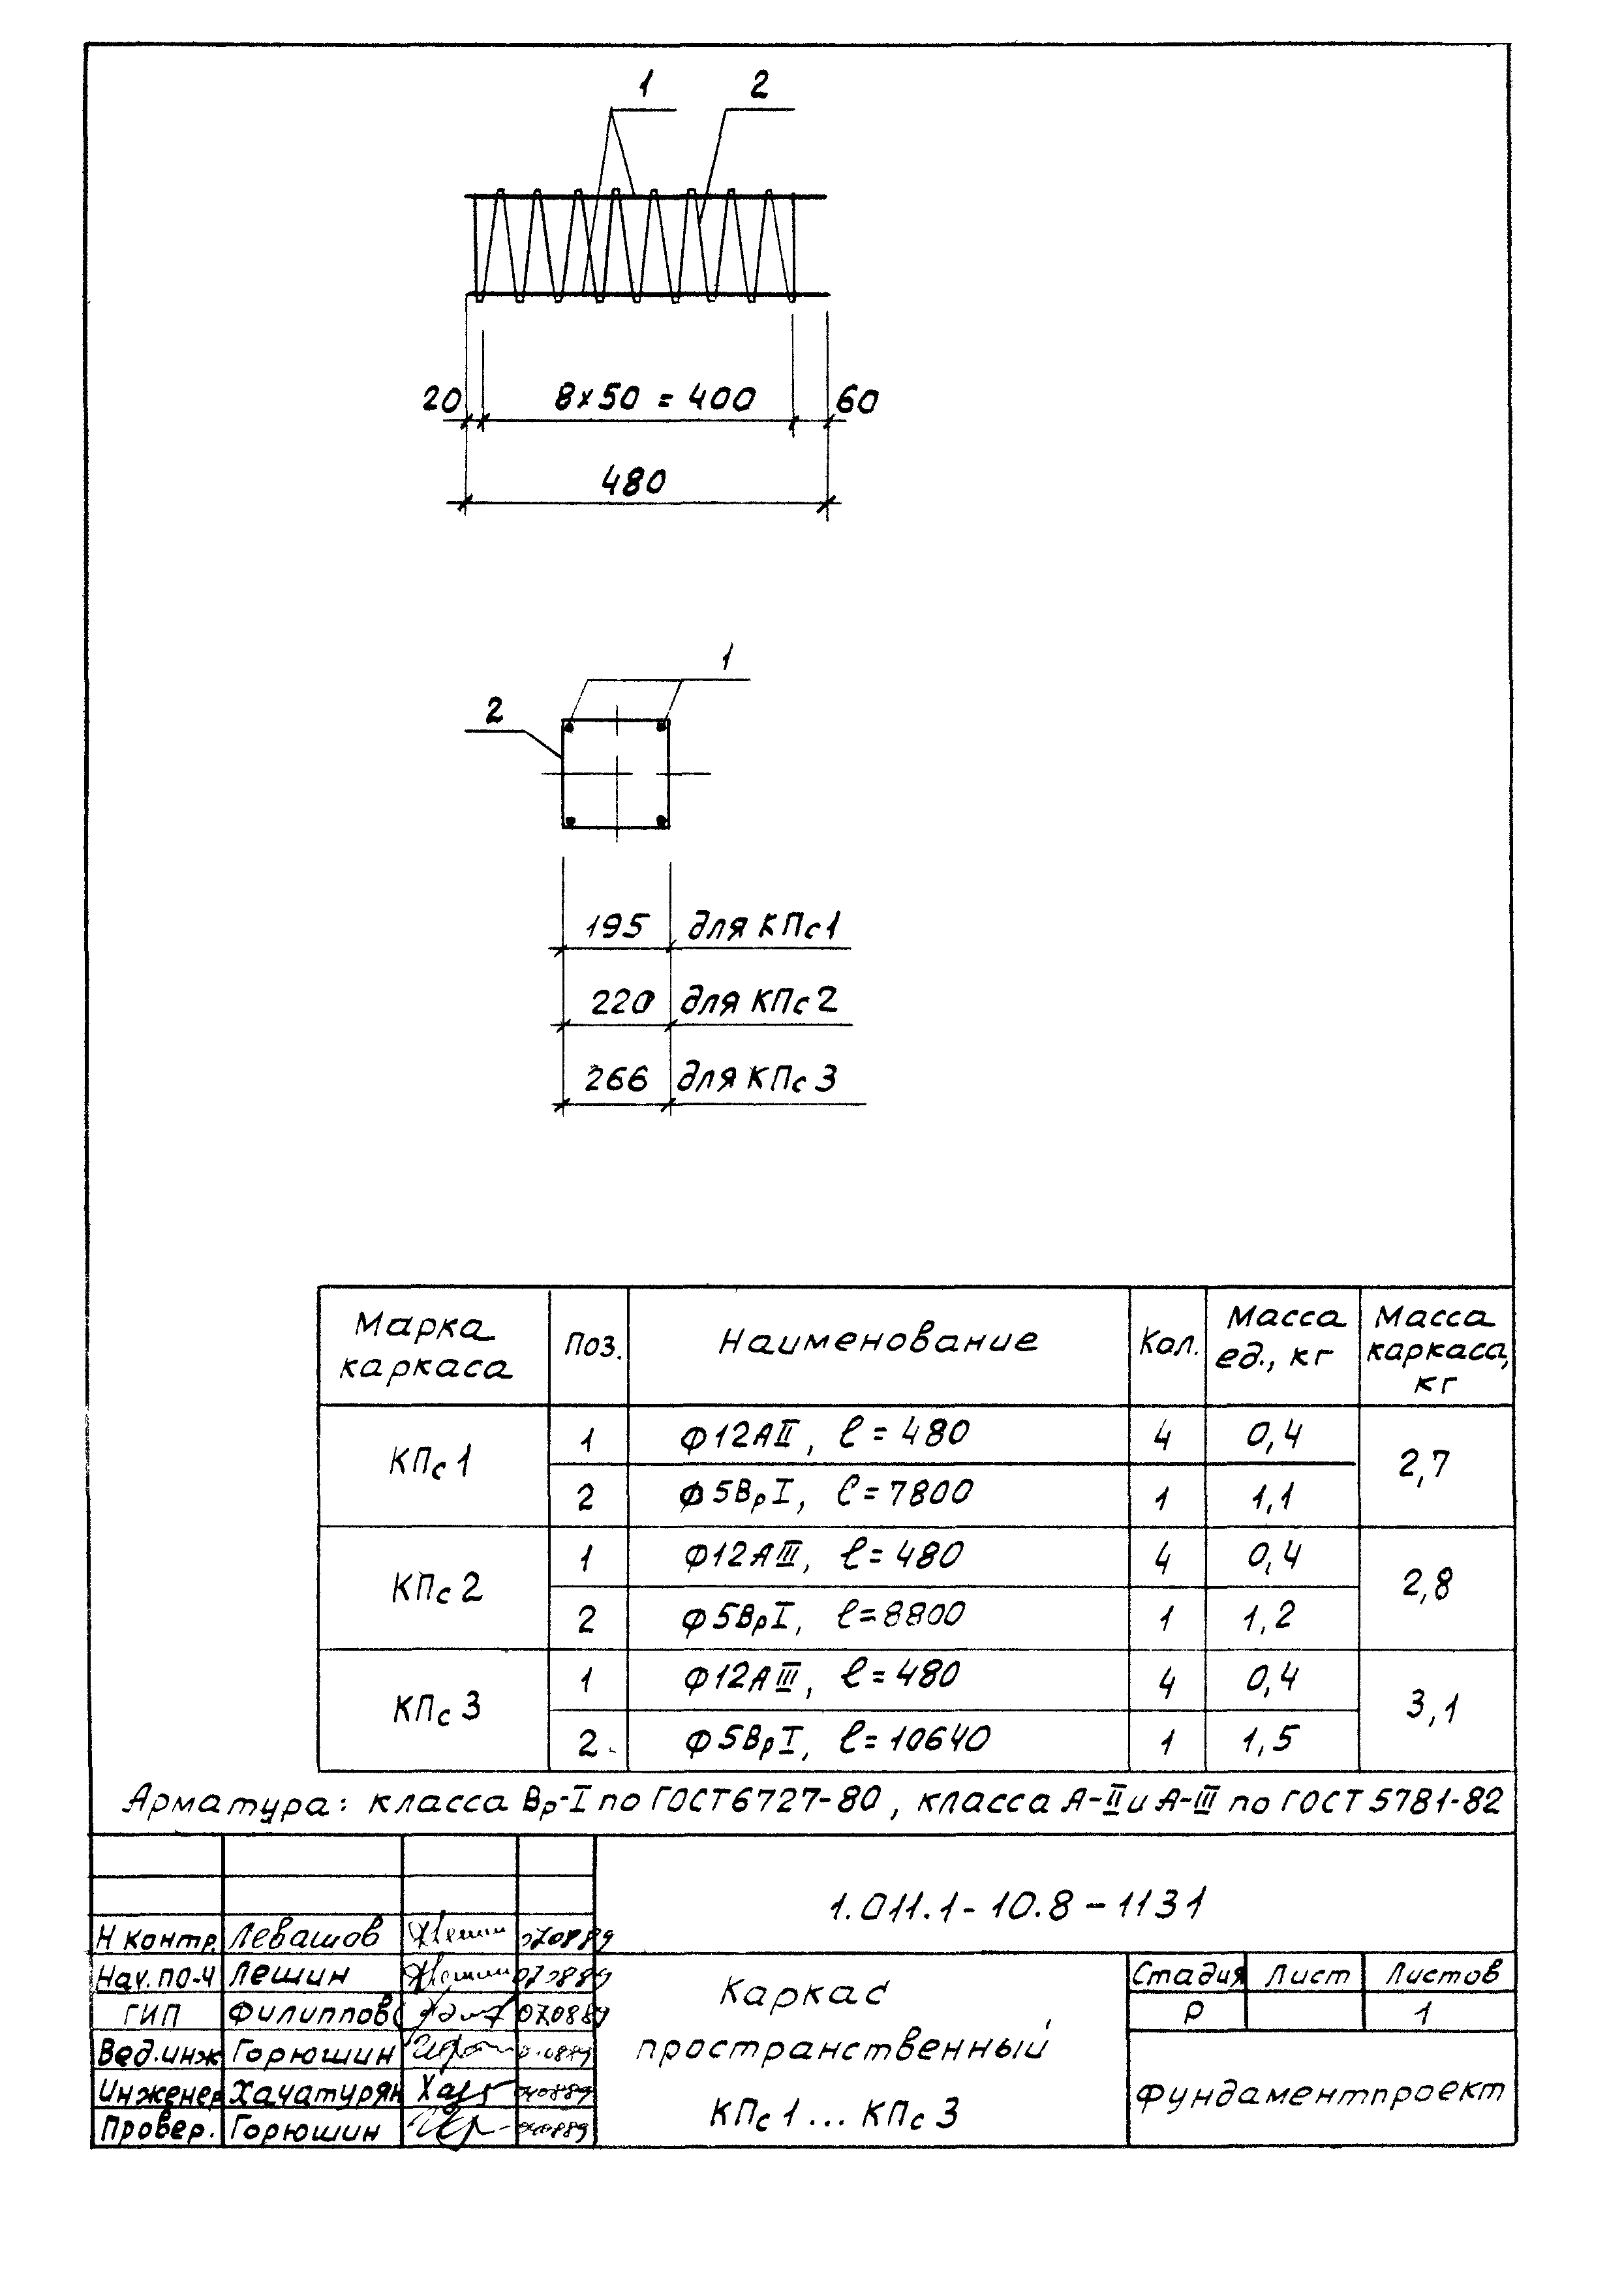 1 2
20 8x50 = 400 60
480
1
2
195 для КПс1
220 для КПс2
266 для КПс3
Марка каркаса Поз. Наименование Кол. Масса ед., кг Масса каркаса, кг
КПс1 1 Ф12АII, ℓ=480 4 0,4 2,7
2 Ф5ВрI, ℓ=7800 1 1,1
КПс2 1 Ф12АIII, ℓ=480 4 0,4 2,8
2 Ф5ВрI, ℓ=8800 1 1,2
КПс3 1 Ф12АIII, ℓ=480 4 0,4 3,1
2 Ф5ВрI, ℓ=10640 1 1,5
Арматура: класса Вр-I по ГОСТ6727-80, класса А-II и А-III по ГОСТ 5781-82
1.011.1-10.8-1131
Н контр. Левашов 070889
Нач.ПО-4 Лешин 070889
ГИП Филиппов 070889
Вед.инж Горюшин
Инженер Хачатурян
Провер. Горюшин
Каркас
пространственный
КПс1...КПс3
Стадия Лист Листов
Р 1
Фундаментпроект